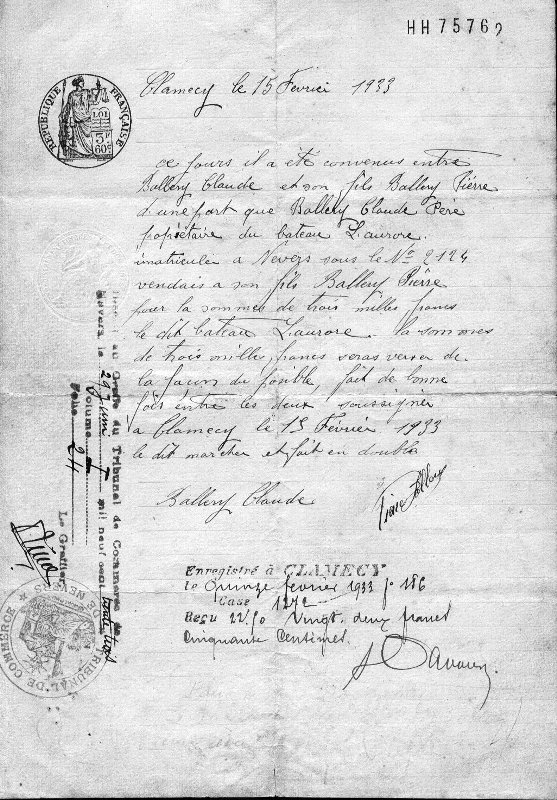 HH 75762
RÉPUBLIQUE FRANÇAISE
LOI
3F
60c
Clamecy le 15 Février 1933
ce jours il a été convenus entre
Ballery Claude et son fils Ballery Pierre
d'une part que Ballery Claude Père
propriétaire du bateau L'aurore.
imatriculer a Nevers sous le No 2124
vendais a son fils Ballery Pierre
pour la sommes de trois milles francs
le dit bateau L'aurore. la sommes
de trois milles francs seras verser de
la façon du posible fait de bonne
fois entre les deux soussigner
a Clamecy le 15 Février 1933
le dit marcher et fait en double
Ballery Claude
Pierre Ballery
Enregistré à CLAMECY
le Quinze février 1933 fo 186
Case 1272
Reçu 22.50 Vingt deux francs
Cinquante Centimes
au Greffe du Tribunal de Commerce de
Nevers le 29 Juin mil neuf cent trente trois
Volume I
Folio 24
Le Greffier
TRIBUNAL DE COMMERCE DE NEVERS